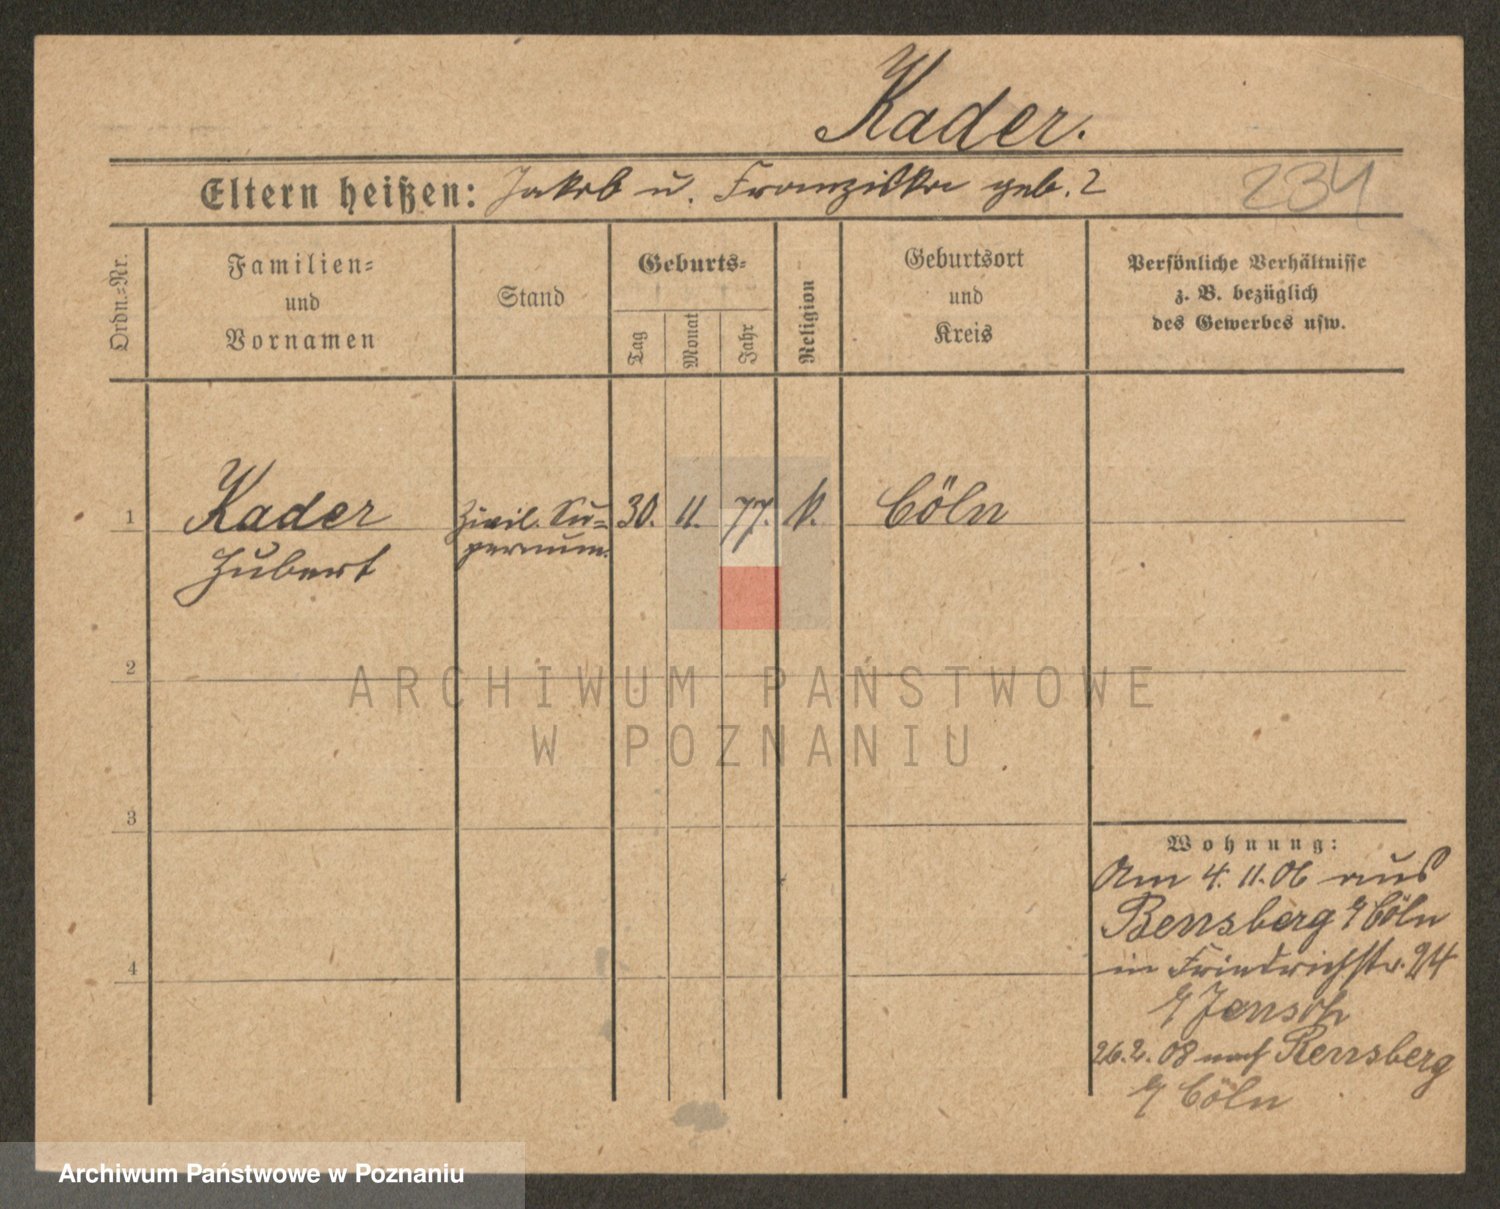 Kader.
Eltern heißen: Jakob u. Franziska geb. ?
234
Ordn.-Nr.
Familien-
und
Vornamen
Stand
Geburts-
Tag
Monat
Jahr
Religion
Geburtsort
und
Kreis
Persönliche Verhältnisse
z. B. bezüglich
des Gewerbes usw.
1
Kader
Hubert
Zivil. Su-
pernum.
30.
11.
77.
Cöln
2
ARCHIWUM PAŃSTWOWE
W POZNANIU
3
4
Wohnung:
Am 4. 11. 06 aus
Bensberg b/ Cöln
in Friedrichstr. 24
b/ Jensch
26. 2. 08 nach Bensberg
b/ Cöln
Archiwum Państwowe w Poznaniu